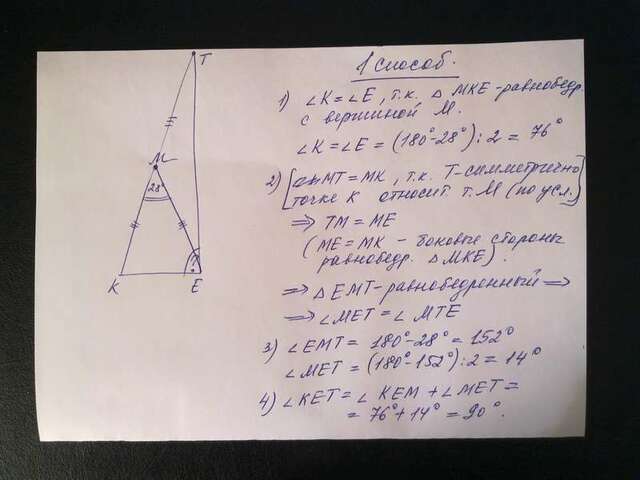 1 способ.
T
1) ∠K = ∠E, т.к. △ MKE - равнобедр.
с вершиной M.
∠K = ∠E = (180° - 28°) : 2 = 76°
M
28°
2) [MT = MK, т.к. T - симметрично
точке K относит. т. M (по усл.)]
⇒ TM = ME
(ME = MK - боковые стороны
равнобедр. △MKE).
?
K
E
⇒ △ EMT - равнобедренный ⇒
⇒ ∠MET = ∠ MTE
3) ∠EMT = 180° - 28° = 152°
∠MET = (180° - 152°) : 2 = 14°
4) ∠KET = ∠ KEM + ∠MET =
= 76° + 14° = 90°.